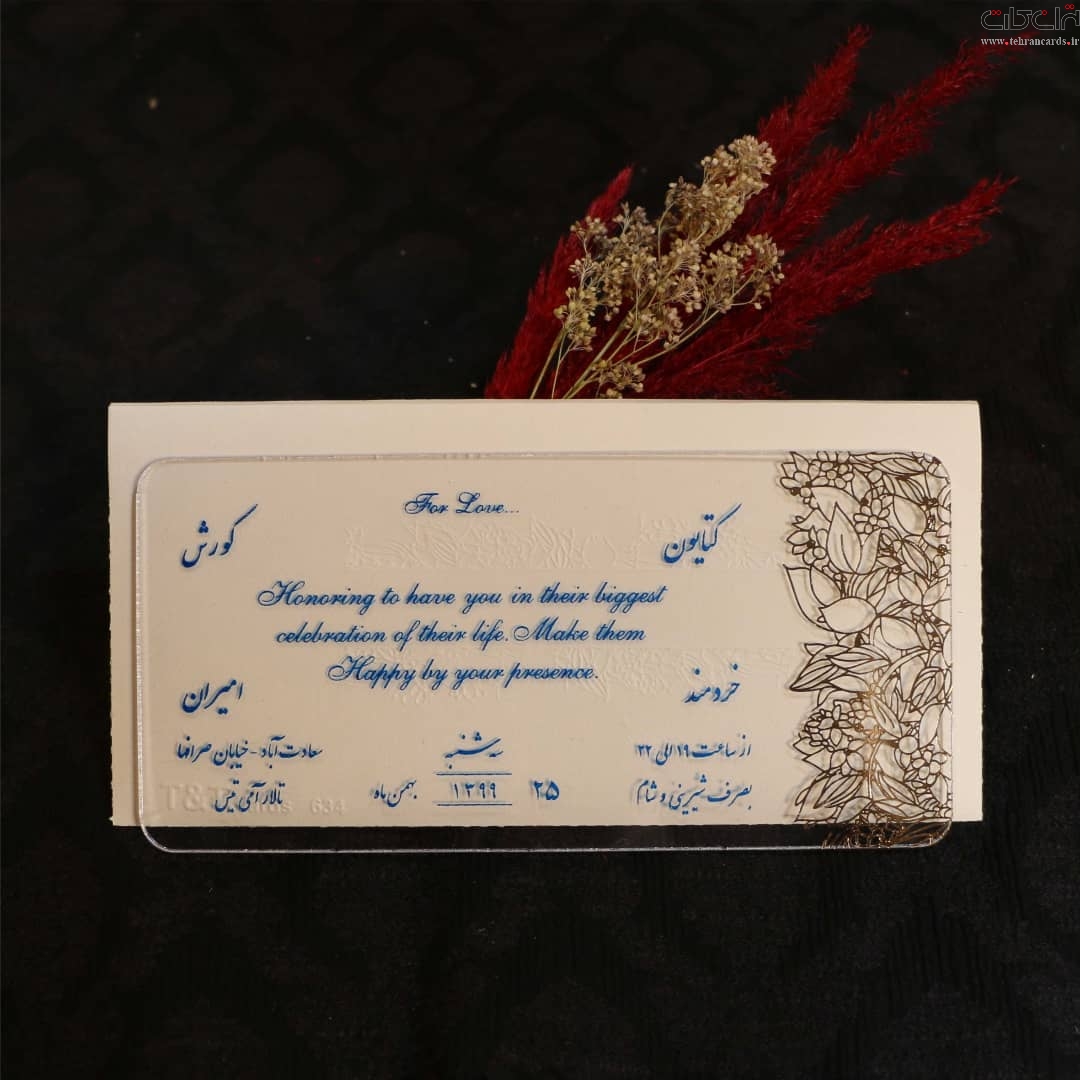 تهران کارت
www.tehrancards.ir
For Love...
کتایون
کورش
Honoring to have you in their biggest
celebration of their life. Make them
Happy by your presence.
خردمند
امیران
از ساعت ۱۹ الی ۲۲
سه شنبه
سعادت‌آباد - خیابان صرافها
بصرف شیرینی و شام
۲۵ ۱۳۹۹ بهمن ماه
تالار آمی تیس
T&T Cards 634